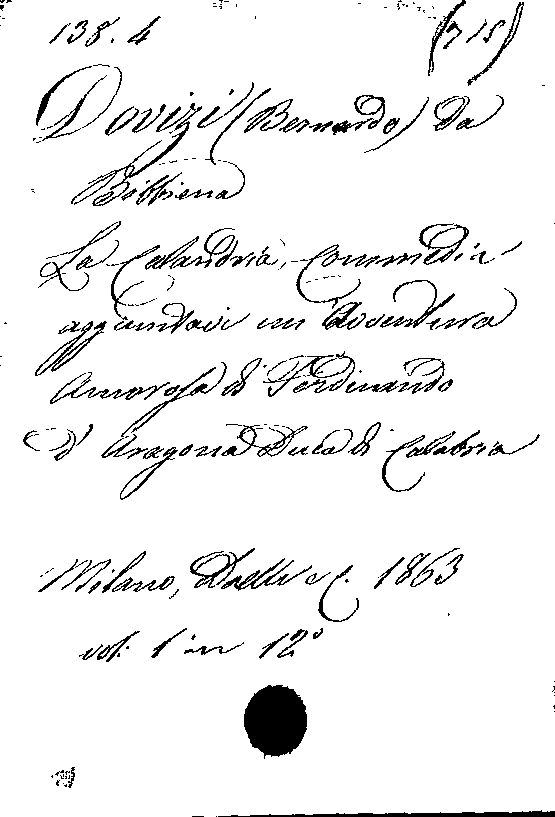 138. 4 (715)
Dovizi (Bernardo) da
Bibbiena
La Calandria, Commedia
aggiuntavi un'Avventura
Amorosa di Ferdinando
d'Aragona Duca di Calabria
Milano, Daelli e C. 1863
vol: 1 in 12°